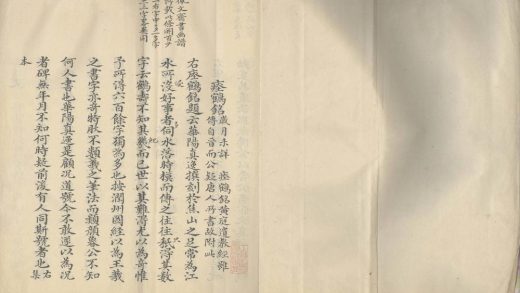 佩文齋書畫譜
瘞鶴銘 歲月未詳 瘞鶴銘黃庭遺教經雖
傳自晉而公疑唐人所書故附此
右瘞鶴銘題云華陽真逸撰刻於焦山之足常為江
水所沒好事者伺水落時模而傳之往往秖得其數
字云鶴壽不知其幾而已世以其難得尤以為奇惟
予所得六百餘字獨為多也按潤州圖經以為王羲
之書字亦奇特然不類羲之筆法而類顏魯公不知
何人書也華陽真逸是顧況道號今不敢遂以為況
者碑無年月不知何時疑前後有人同斯號者也 右集
本